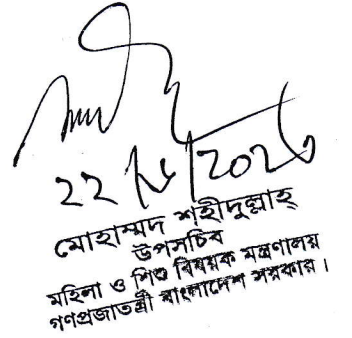 মোহাম্মদ শহীদুল্লাহ্
উপসচিব
মহিলা ও শিশু বিষয়ক মন্ত্রণালয়
গণপ্রজাতন্ত্রী বাংলাদেশ সরকার।